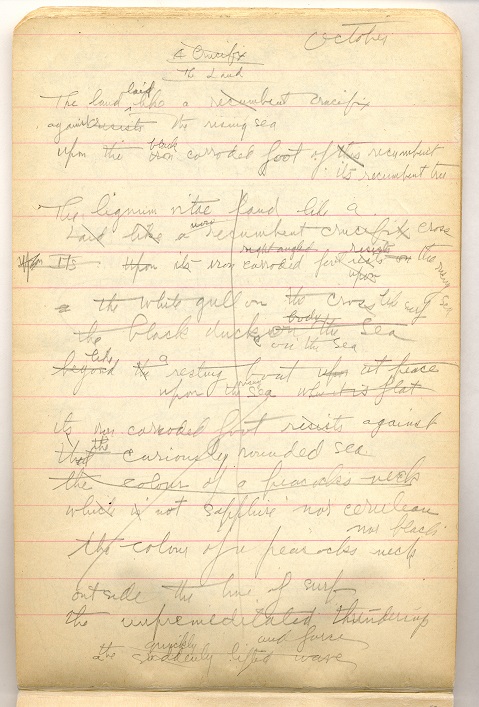 October
A Crucifix
The Land
The land laid like a recumbent crucifix
against resists the rising sea
upon the black iron corroded foot of this recumbent
its recumbent tree
The lignum vitae land like a
Laid like a recumbent crucifix cross
Upon Its upon its iron corroded foot resists on the rising sea
right angled
upon
the white gull on the cross
the black ducks body on the sea
on the sea
beyond like the a resting boat upon at peace
upon the sea what is flat
its iron corroded foot resists against
that the curiously rounded sea
the colour of a peacocks neck
which is not sapphire nor cerulean
nor black
the colour of a peacocks neck
outside the line of surf
the unpremeditated thundering
and force
the quickly suddenly lifted wave